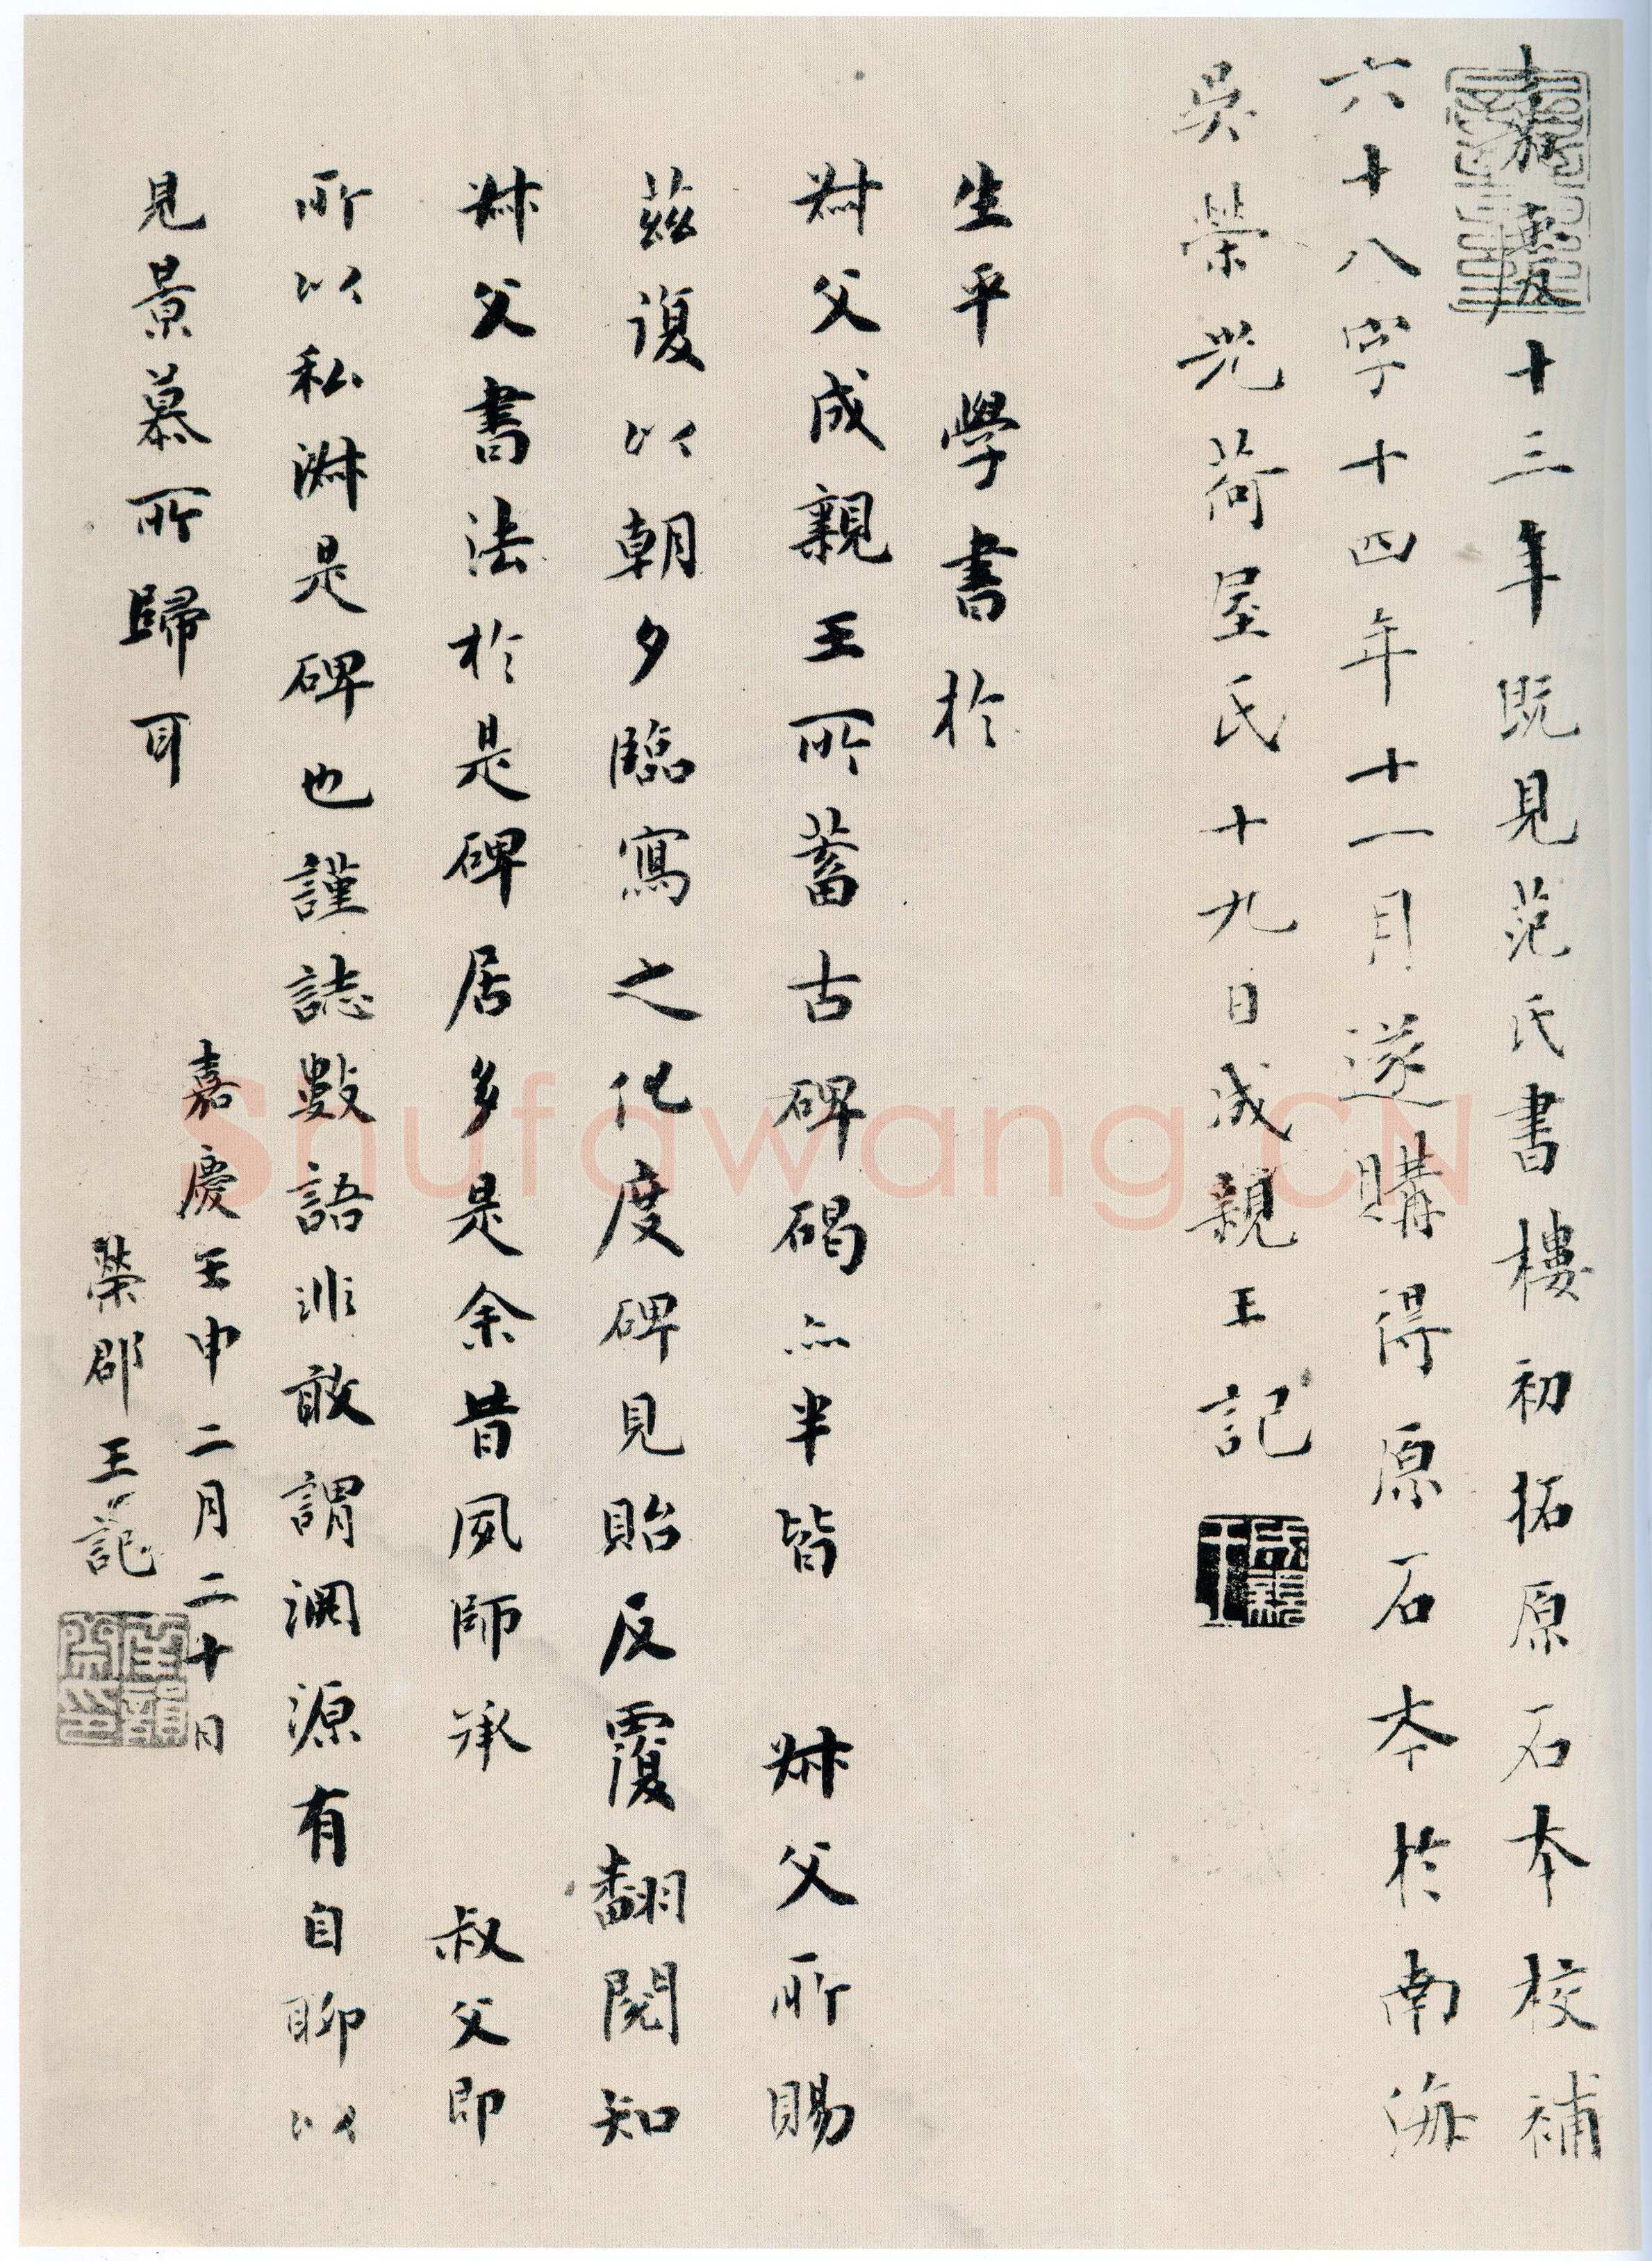 嘉慶十三年既見范氏書樓初拓原石本校補
六十八字十四年十一月遂購得原石本於南海
吳榮光荷屋氏十九日成親王記
生平學書於
叔父成親王所蓄古碑碣亦半皆 叔父所賜
茲復以朝夕臨寫之化度碑見貽反覆翻閱知
叔父書法於是碑居多是余昔夙師承 叔父即
所以私淑是碑也謹誌數語非敢謂淵源有自聊以
見景慕所歸耳
嘉慶壬申二月二十日
榮郡王記
Shufawang.CN